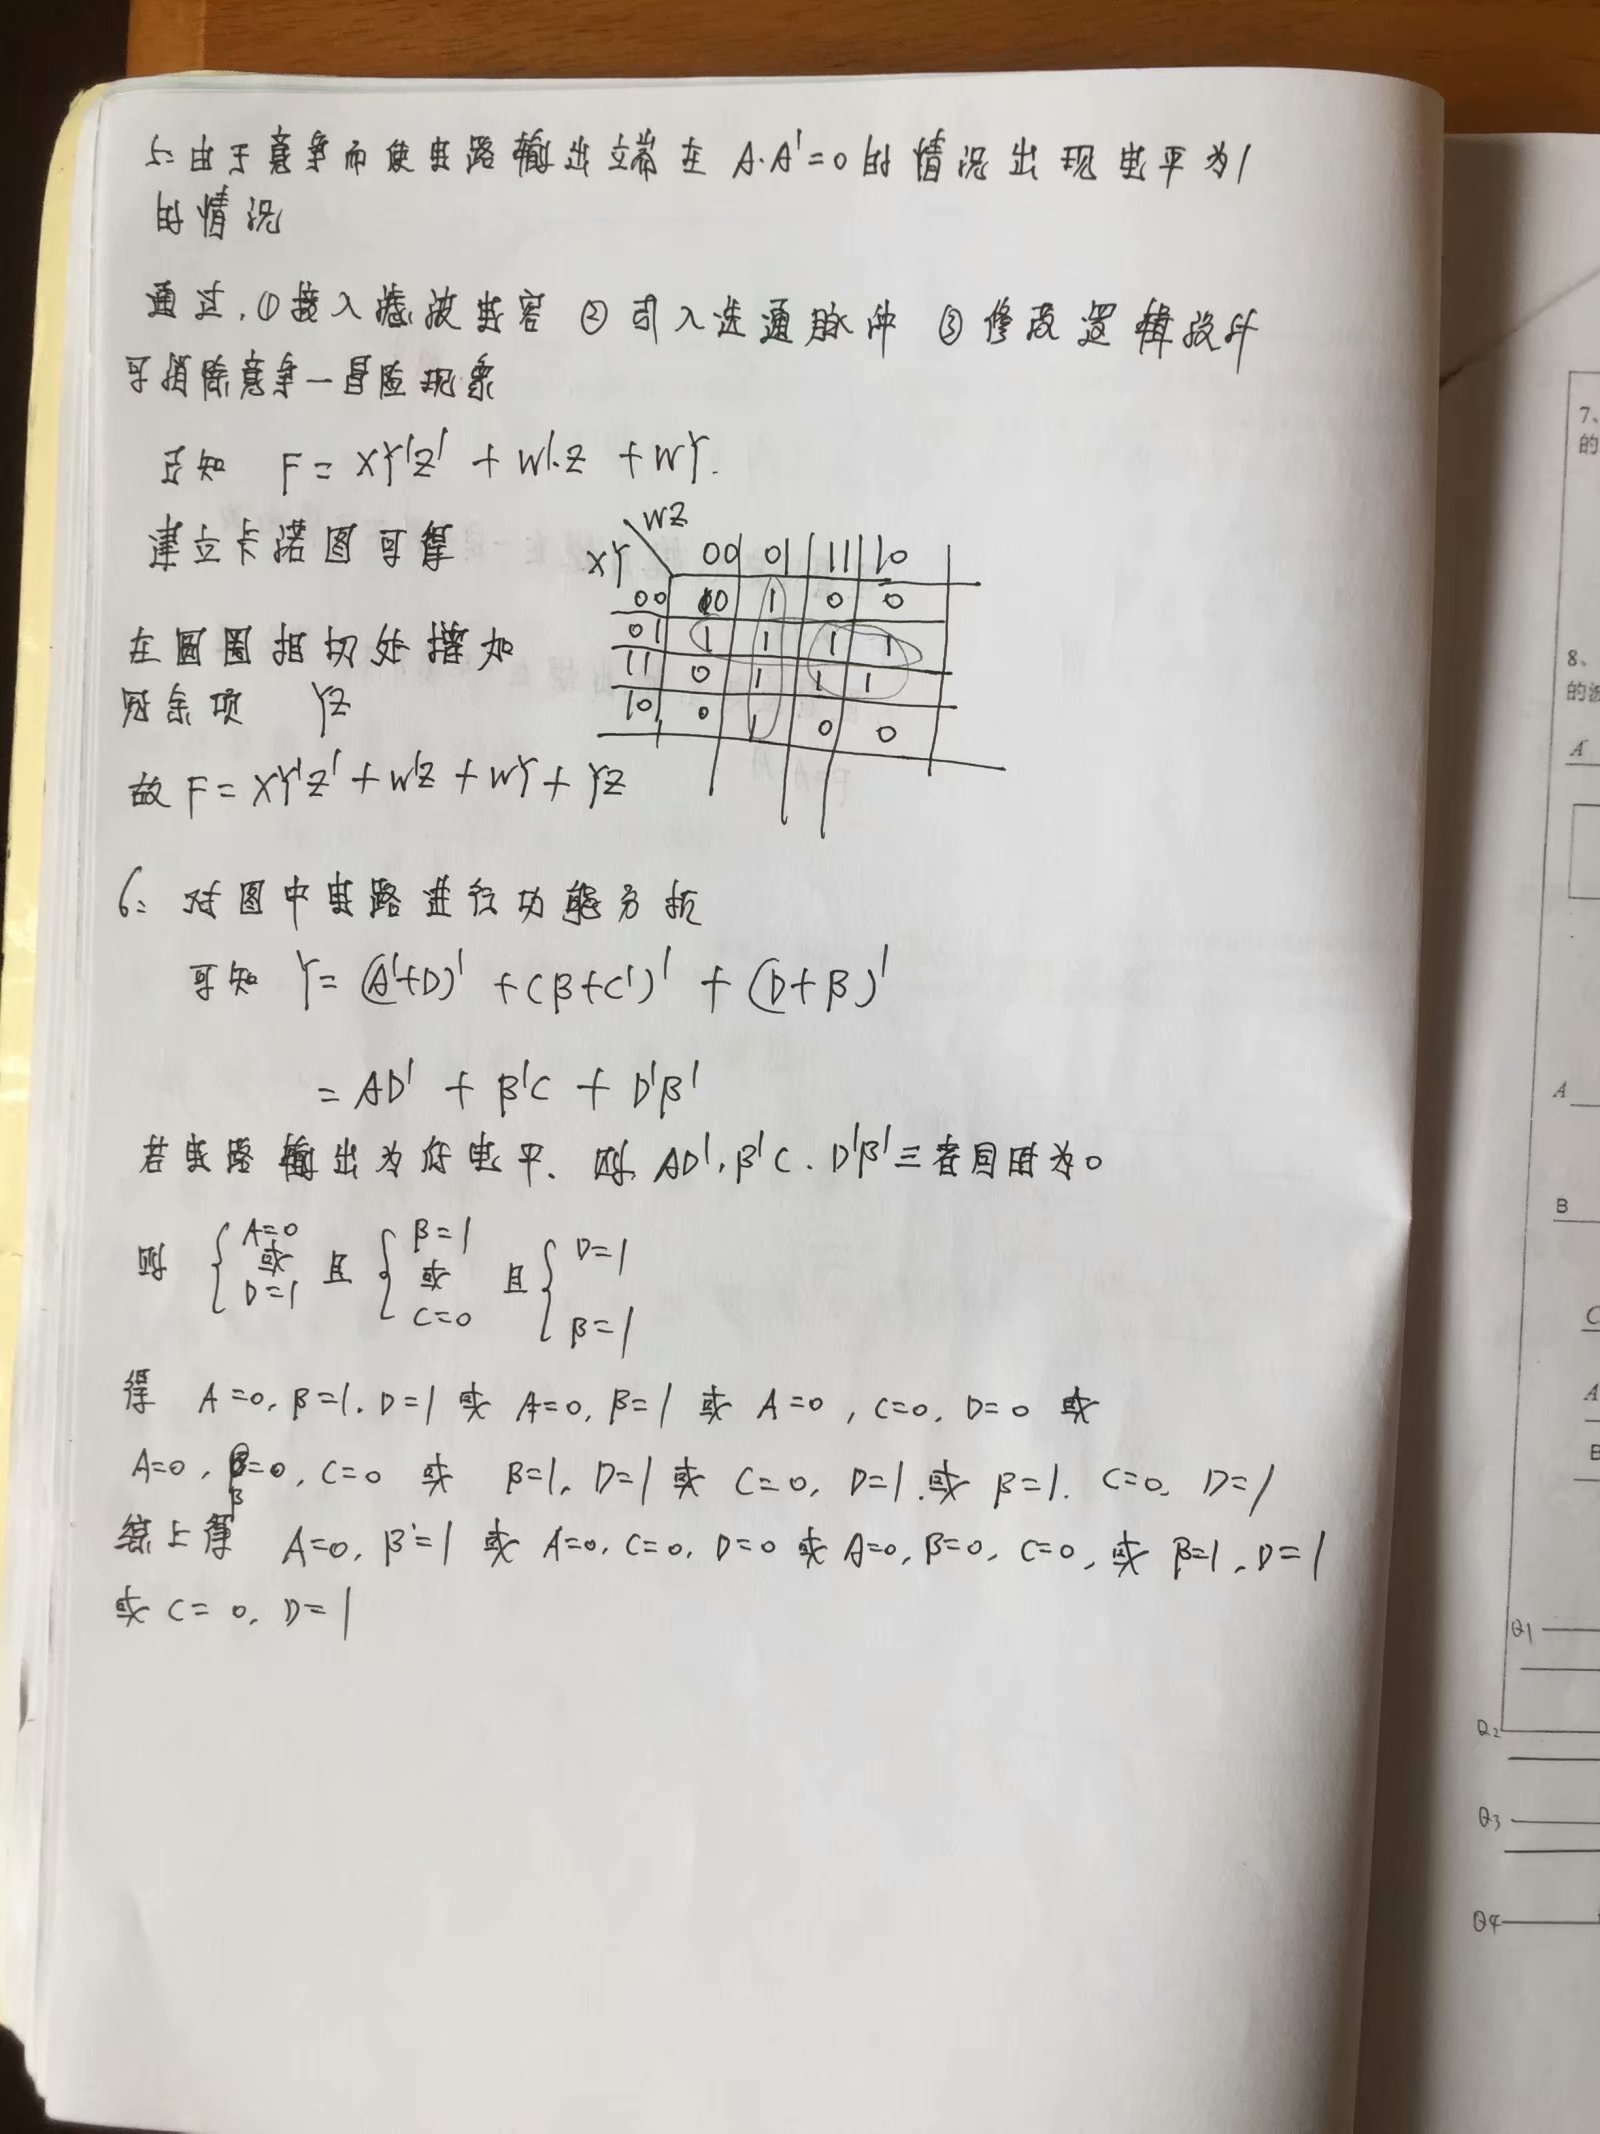 5: 由于竞争而使电路输出端在 A·A'=0 的情况出现电平为1
的情况
通过, ①接入滤波电容 ②引入选通脉冲 ③修改逻辑设计
可消除竞争—冒险现象
已知 F = XY'Z' + W'·Z + WY.
建立卡诺图可得
WZ
XY 00 01 11 10
00 0 1 0 0
01 1 1 1 1
11 0 1 1 1
10 0 1 0 0
在圆圈相切处增加
冗余项 YZ
故 F = XY'Z' + W'Z + WY + YZ
6: 对图中电路进行功能分析
可知 Y = (A'+D)' + (B+C')' + (D+B)'
= AD' + B'C + D'B'
若电路输出为低电平. 则 AD', B'C. D'B' 三者同时为0
则 { A=0 或 D=1 且 { B=1 或 C=0 且 { D=1 B=1
得 A=0, B=1. D=1 或 A=0, B=1 或 A=0, C=0, D=0 或
A=0, B=0, C=0 或 B=1, D=1 或 C=0, D=1. 或 B=1. C=0, D=1
综上得 A=0, B=1 或 A=0, C=0, D=0 或 A=0, B=0, C=0, 或 B=1, D=1
或 C=0, D=1
7、
的
8、
的波
A
A
B
C
A
B
Q1
Q2
Q3
Q4